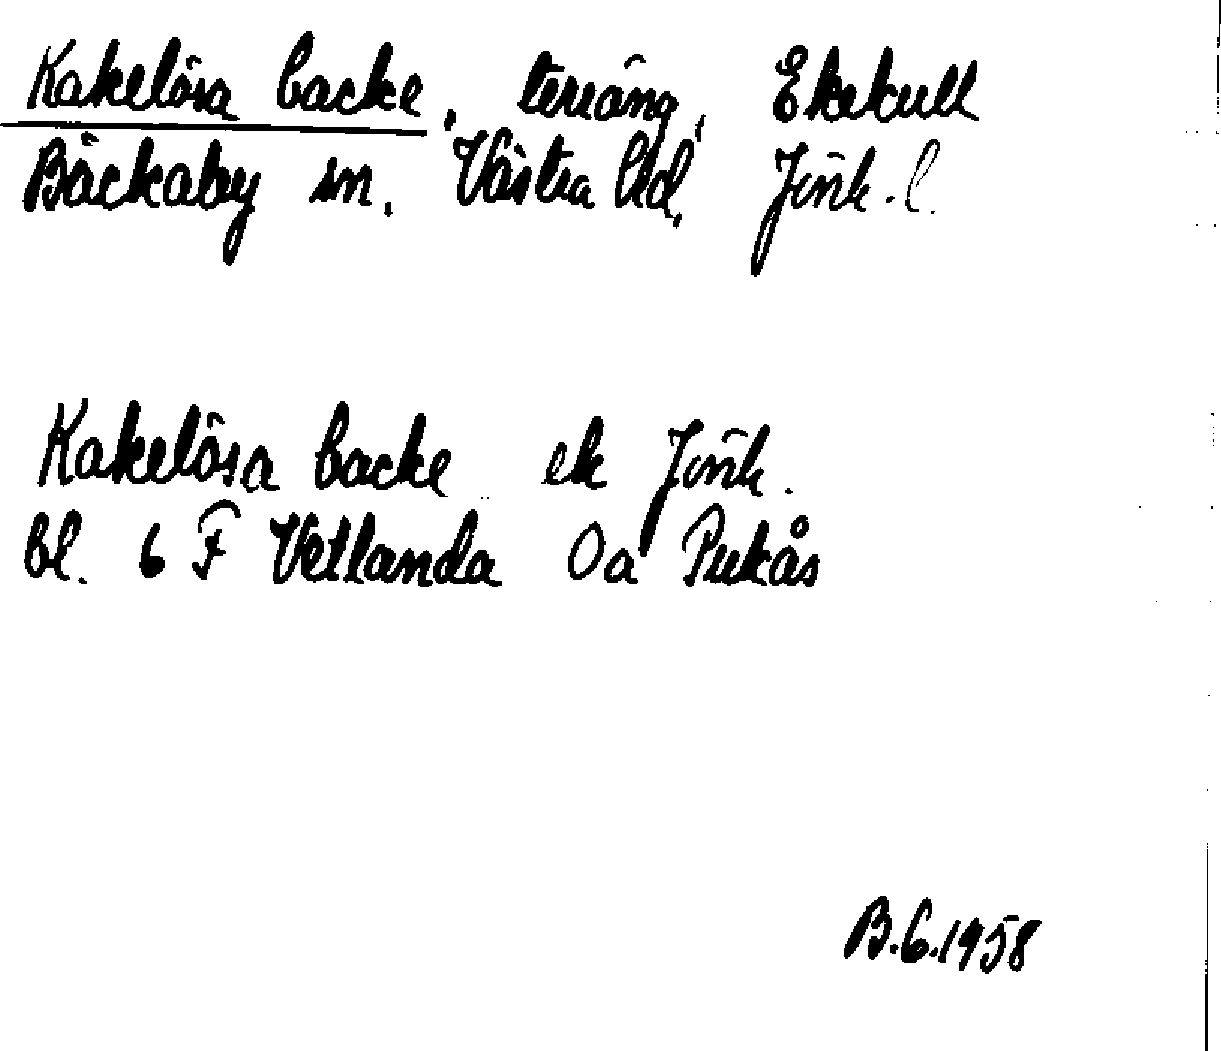 Kakelösa backe, terräng, Ekekull
Bäckaby sn. Västra hd. Jönk. l.
Kakelösa backe ek Jönk.
bl. 6 F Vetlanda Oa Pukås
B.G.1958